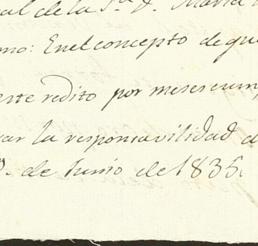 al de la S.ª D. Maria
mo: En el concepto de que
este redito por meses cum
var la responsavilidad d
de Junio de 1835.